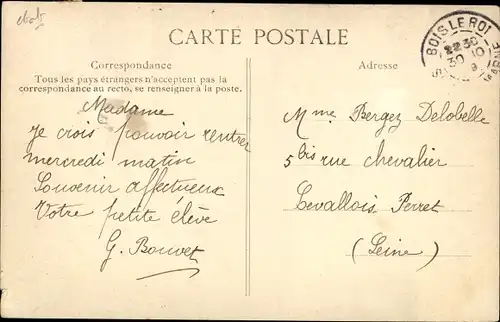 CARTE POSTALE
BOIS LE ROI
22 30
30 10
9
Correspondance
Tous les pays étrangers n'acceptent pas la
correspondance au recto, se renseigner à la poste.
Madame
Je crois pouvoir rentrer
mercredi matin
Souvenir affectueux
Votre petite élève
G. Bouvet
Adresse
Mme Bergez Delobelle
5 bis rue chevalier
Levallois Perret
(Seine)